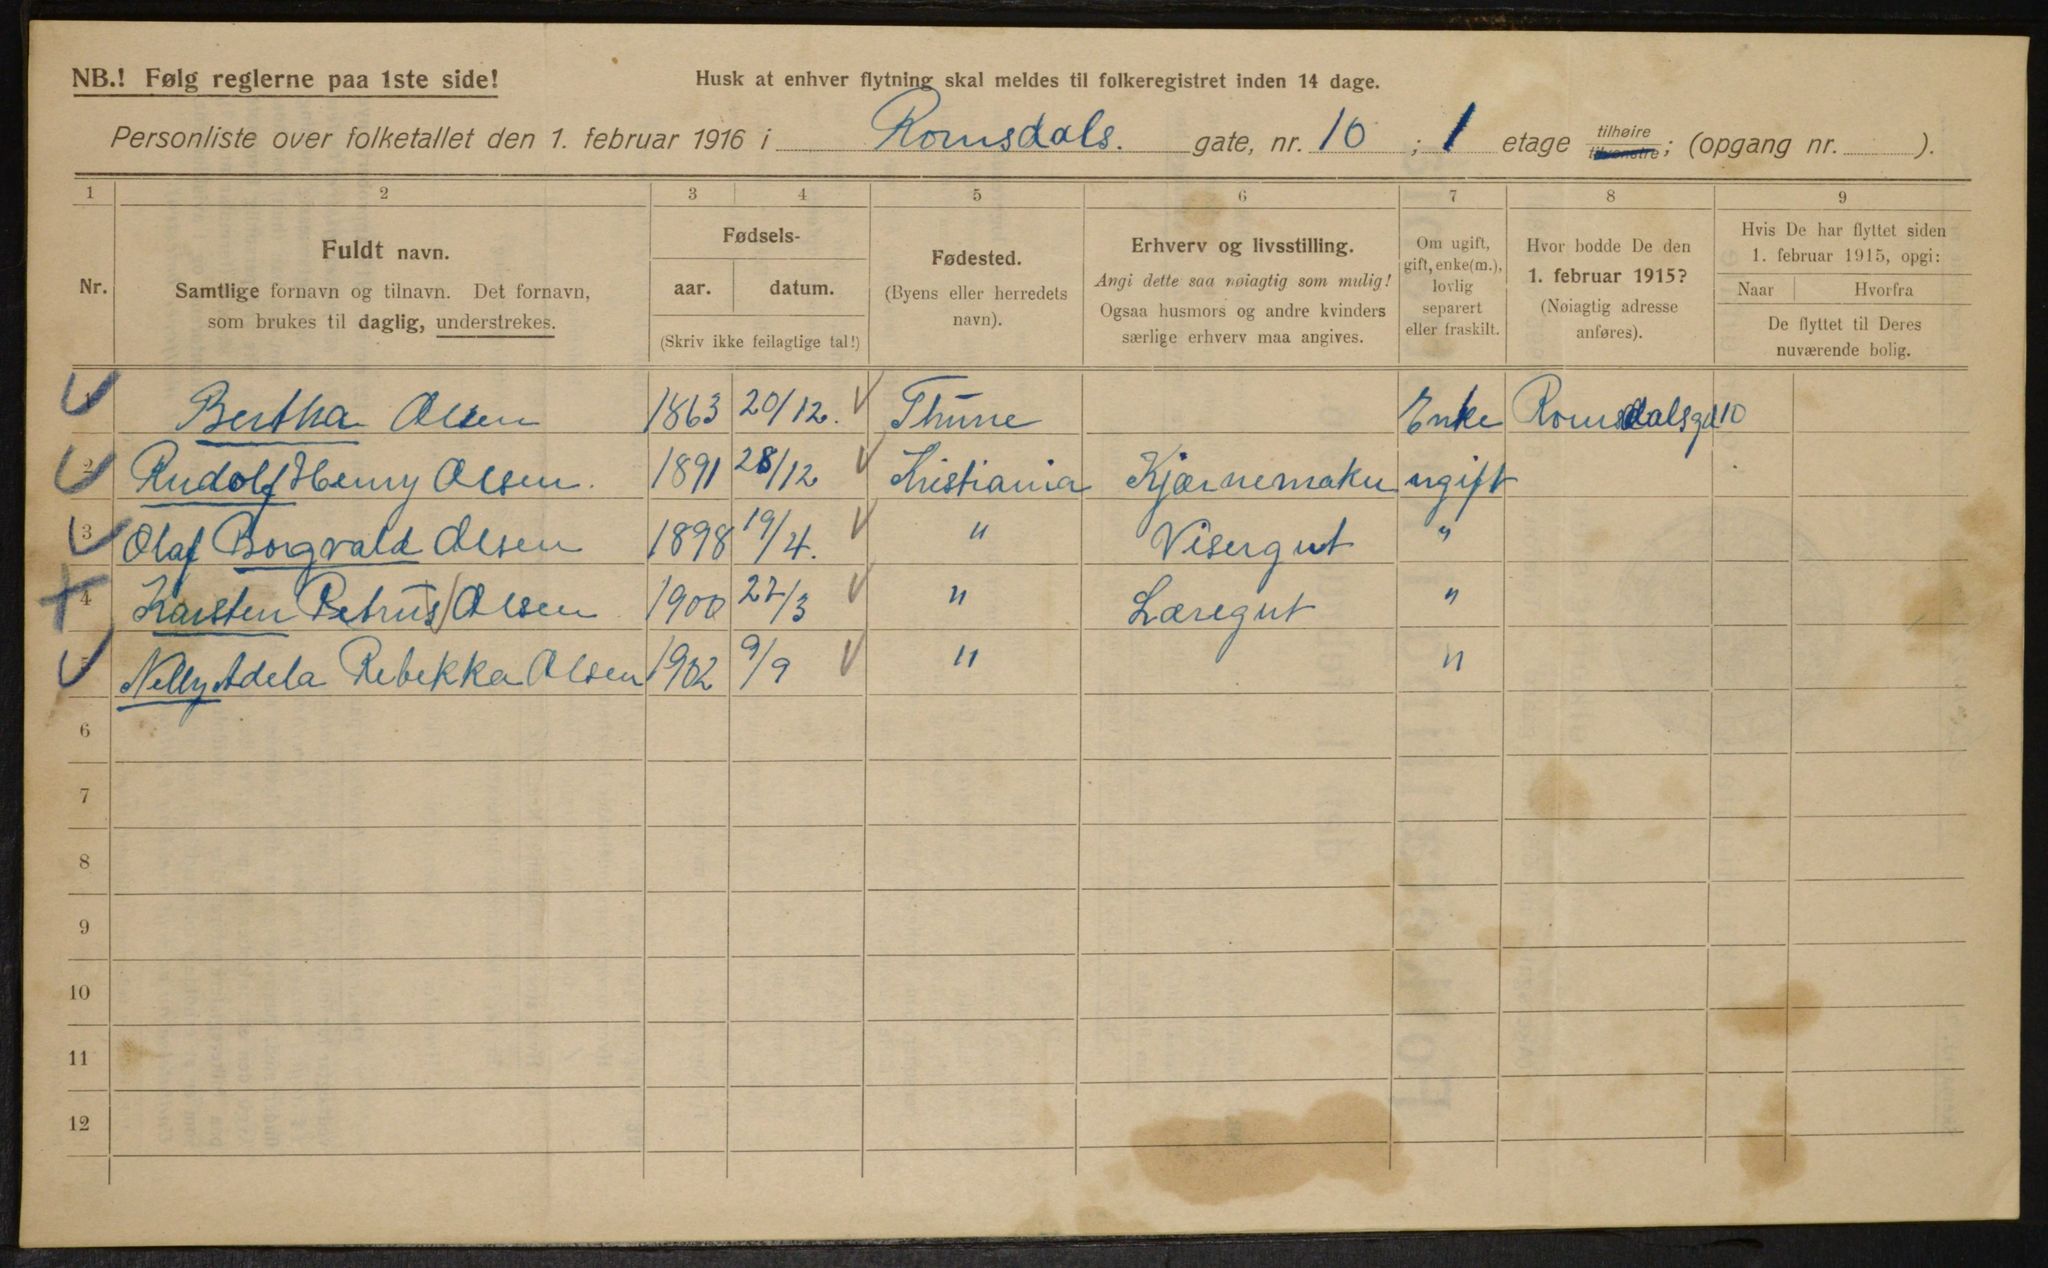 NB.! Følg reglerne paa 1ste side!
Husk at enhver flytning skal meldes til folkeregistret inden 14 dage.
Personliste over folketallet den 1. februar 1916 i Romsdals. gate, nr. 10 ; 1 etage tilhøire tilvenstre; (opgang nr. ).
1 2 3 4 5 6 7 8 9
Nr.
Fuldt navn.
Samtlige fornavn og tilnavn. Det fornavn,
som brukes til daglig, understrekes.
Fødsels-
aar. datum.
(Skriv ikke feilagtige tal!)
Fødested.
(Byens eller herredets
navn).
Erhverv og livsstilling.
Angi dette saa nøiagtig som mulig!
Ogsaa husmors og andre kvinders
særlige erhverv maa angives.
Om ugift,
gift, enke(m.),
lovlig
separert
eller fraskilt.
Hvor bodde De den
1. februar 1915?
(Nøiagtig adresse
anføres).
Hvis De har flyttet siden
1. februar 1915, opgi:
Naar Hvorfra
De flyttet til Deres
nuværende bolig.
1 Bertha Olsen 1863 20/12. Thune Enke Romsdalsgd 10
2 Rudolf Henry Olsen. 1891 28/12 Kristiania Kjærnemaker ugift
3 Olaf Borgvald Olsen 1898 19/4. " Visergut "
4 Karsten Petrus Olsen 1900 22/3 " Læregut "
5 Nelly Adela Rebekka Olsen 1902 9/9 " "
6
7
8
9
10
11
12